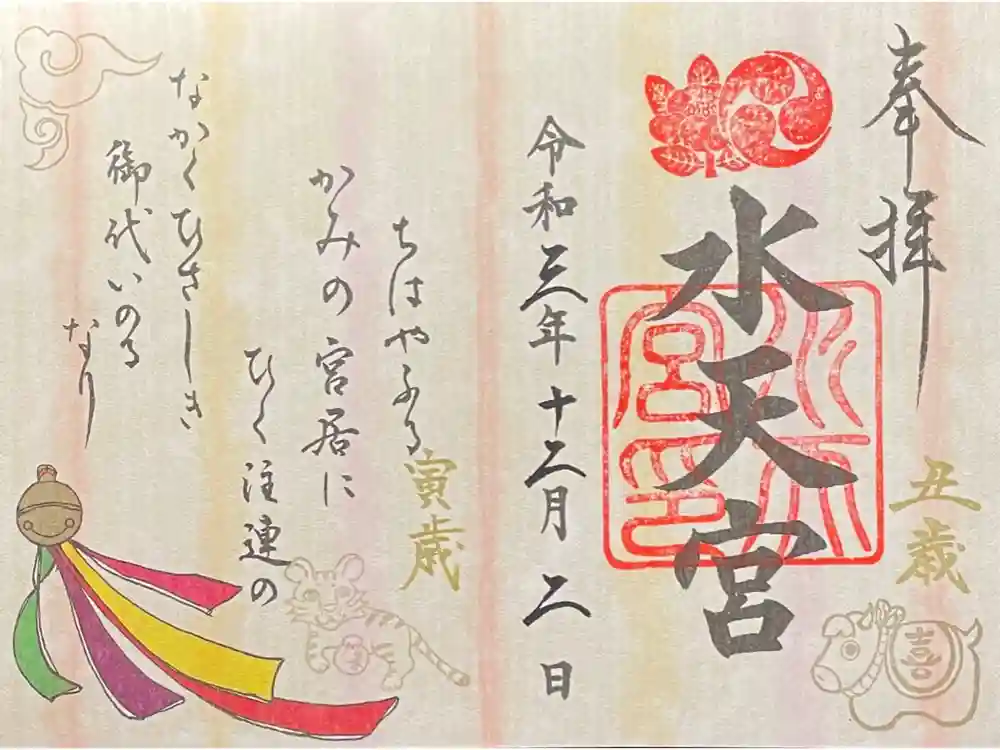 奉拝
丑歳
水天宮
水天宮印
喜
令和三年十二月二日
ちはやふる
寅歳
かみの宮居に
ひく注連の
なかくひさしき
御代いのる
なり